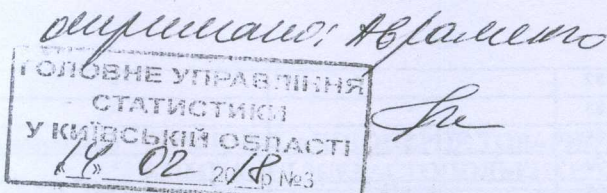 отримано: Авраменко
ГОЛОВНЕ УПРАВЛІННЯ
СТАТИСТИКИ
У КИЇВСЬКІЙ ОБЛАСТІ
"14" 02 2018р №3